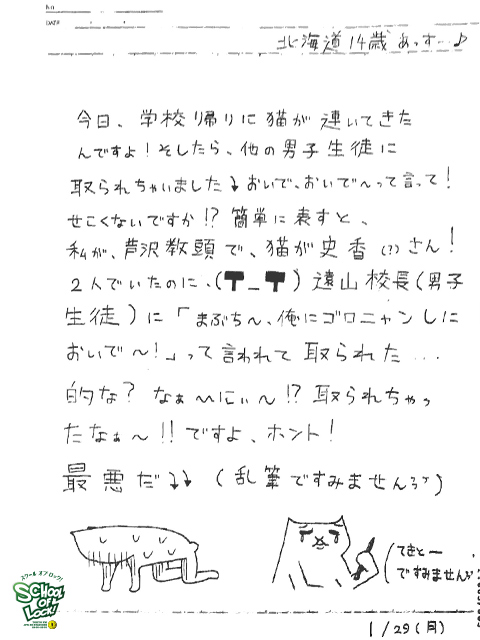 No.
DATE
北海道 14歳 あっす…♪
今日、学校帰りに猫が連いてきた
んですよ！そしたら、他の男子生徒に
取られちゃいました↓おいで、おいで〜って言って！
せこくないですか!? 簡単に表すと、
私が、芦沢教頭で、猫が史香(?)さん！
2人でいたのに、(T_T) 遠山校長(男子
生徒)に「まぶち〜、俺にゴロニャンしに
おいで〜！」って言われて取られた…
的な？ なぁ〜にぃ〜!? 取られちゃっ
たなぁ〜!! ですよ、ホント！
最悪だ↓↓ (乱筆ですみません)
(てきとー
ですみません)
スクール オブ ロック!
SCHOOL OF LOCK!
1/29(月)